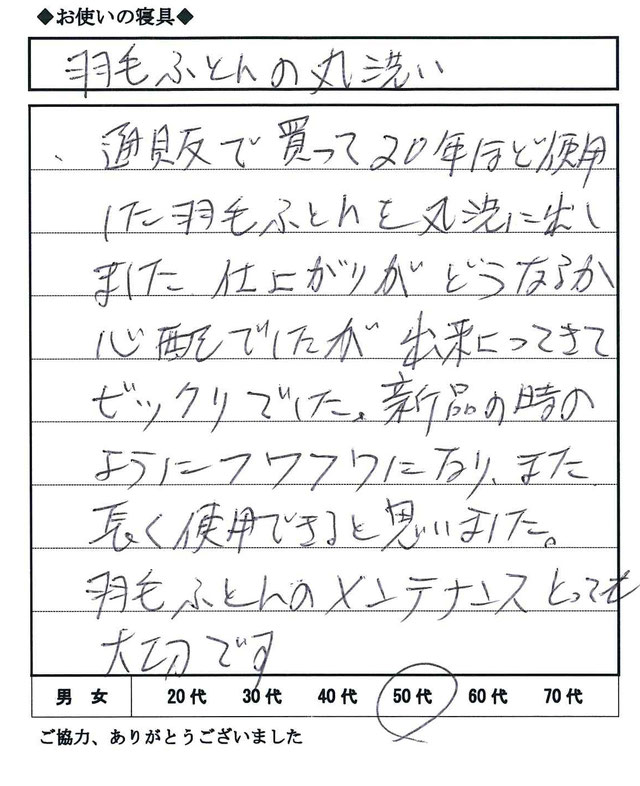 ◆お使いの寝具◆
羽毛ふとんの丸洗い
、通販で買って20年ほど使用
した羽毛ふとんを丸洗に出し
ました 仕上がりがどうなるか
心配でしたが 出来上ってきて
ビックリでした。新品の時の
ようにフワフワになり、また
長く使用できると思いました。
羽毛ふとんのメンテナンスとっても
大切です
男 女 20代 30代 40代 50代 60代 70代
ご協力、ありがとうございました